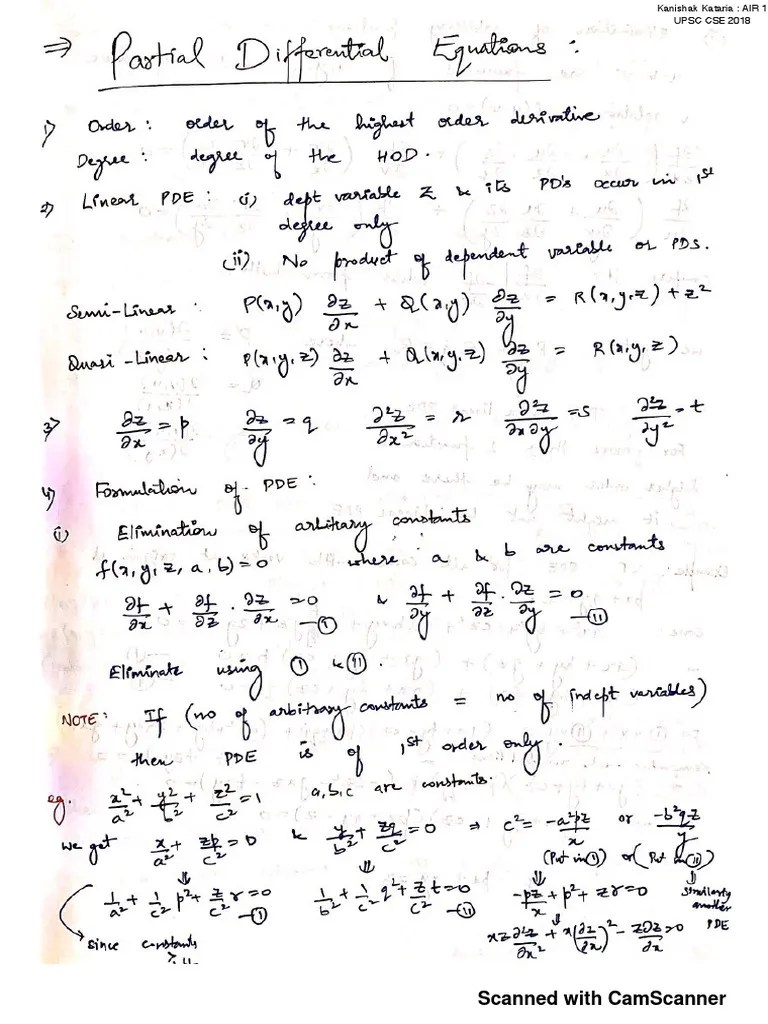 Kanishak Kataria : AIR 1
UPSC CSE 2018
⇒ Partial Differential Equations :
1) Order : order of the highest order derivative
Degree : degree of the HOD.
2) Linear PDE : (i) dept variable Z & its PD's occur in 1st
degree only
(ii) No product of dependent variable or PDs.
Semi-Linear : P(x,y) ∂z/∂x + Q(x,y) ∂z/∂y = R(x,y,z) + z²
Quasi-Linear : P(x,y,z) ∂z/∂x + Q(x,y,z) ∂z/∂y = R(x,y,z)
3) ∂z/∂x = p ∂z/∂y = q ∂²z/∂x² = r ∂²z/∂x∂y = s ∂²z/∂y² = t
4) Formulation of PDE :
(i) Elimination of arbitrary constants
f(x,y,z,a,b)=0 where a & b are constants
∂f/∂x + ∂f/∂z . ∂z/∂x = 0 —(I) & ∂f/∂y + ∂f/∂z . ∂z/∂y = 0 —(II)
Eliminate using (I) & (II).
NOTE: If (no of arbitrary constants = no of indept variables)
then PDE is of 1st order only.
eg. x²/a² + y²/b² + z²/c² = 1 a,b,c are constants.
we get x/a² + zp/c² = 0 & y/b² + zq/c² = 0 ⇒ c² = -a²pz/x or -b²qz/y
(Put in (I)) or (Put in (II))
1/a² + 1/c² p² + z/c² r = 0 —(I) 1/b² + 1/c² q² + z/c² t = 0 —(II) -pz/x + p² + zr = 0 similarly
another
PDE
xz ∂²z/∂x² + x(∂z/∂x)² - z∂z/∂x = 0
since constants
Scanned with CamScanner